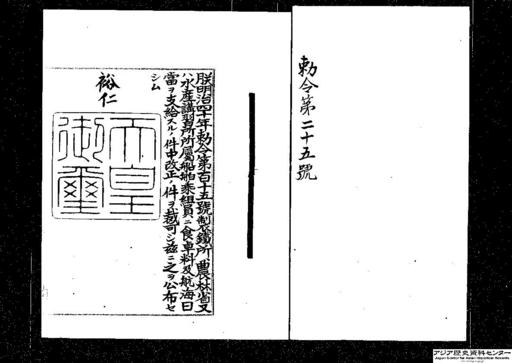 勅令第二十五號
朕明治四十年勅令第百十五號製鐵所農林省又
ハ水產講習所所屬船舶乘組員ニ食卓料及航海日
當ヲ支給スルノ件中改正ノ件ヲ裁可シ茲ニ之ヲ公布セ
シム
裕仁
天皇
御璽
アジア歴史資料センター
Japan Center for Asian Historical Records